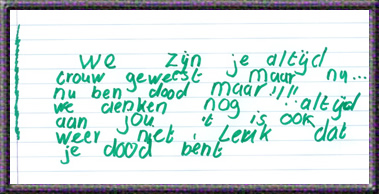 We zijn je altijd
trouw geweest maar nu...
nu ben dood maar!!!!
we denken nog altijd
aan jou 't is ook
weer niet leuk dat
je dood bent